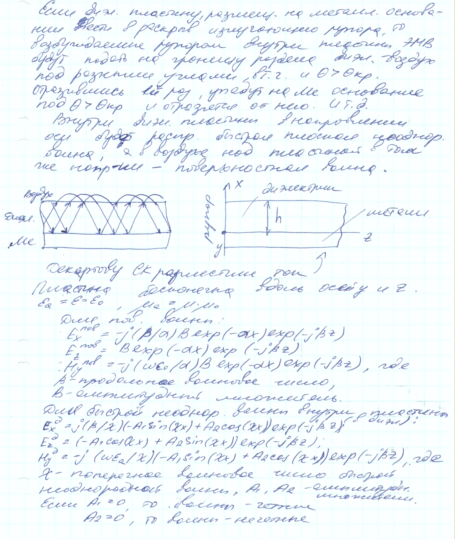 Если диэл. пластину, размещ. на металл. основа-
нии ввести в раскрыв излучающего рупора, то
возбуждаемые рупором внутри пластины ЭМВ
будут падать на границу раздела диэл.-воздух
под разными углами, в т.ч. и θ>θкр.
отразившись раз, упадут на Ме основание
под θ>θкр и отразятся от него. и т.д.
Внутри диэл. пластины в направлении
оси будет распр. быстрая плоская неоднор.
волна, а в воздухе над пластиной в том
же напр-ии – поверхностная волна.
Воздух
Диэл.
Ме
рупор
x
диэлектрик
h
металл
z
y
Декартову СК разместим так
Пластина бесконечна вдоль осей y и z.
Для пов. волны:
Ex^пов = -j(β/α)B exp(-αx)exp(-jβz)
Ez^пов = B exp(-αx) exp(-jβz)
Hy^пов = -j(ωε₀/α)B exp(-αx)exp(-jβz), где
β-продольное волновое число,
B-амплитудный множитель.
Для быстрой неоднор. волны внутри пластины
Ex^д = j(β/χ)(-A₁sin(χx)+A₂cos(χx))exp(-jβz)
Ez^д = (-A₁cos(χx)+A₂sin(χx))exp(-jβz);
Hy^д = -j(ωεa/χ)(-A₁sin(χx)+A₂cos(χx))exp(-jβz), где
χ-поперечное волновое число быстрой
неоднородной волны, A₁, A₂-амплитудн.
множители.
Если A₁=0, то волны-четные
A₂=0, то волны-нечетные